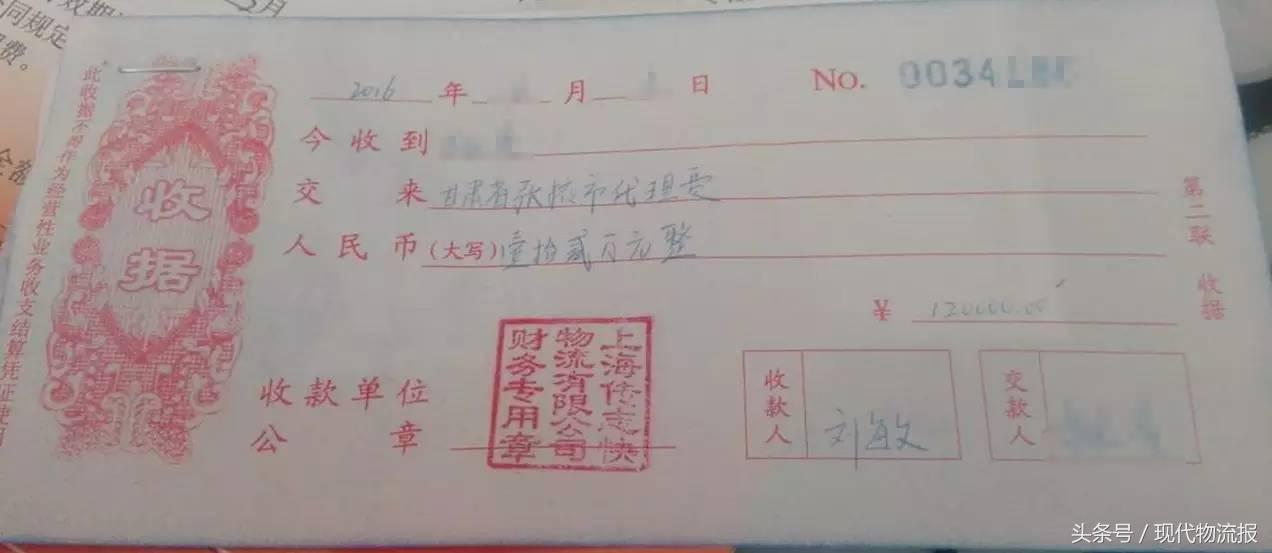 5月
同规定
费。
此收据不得作为经营性业务收支结算凭证使用
收据
2016年 月 日 NO. 0034
今收到
交来甘肃省张掖市代理费
人民币(大写)壹拾贰万元整
¥ 120000.00
第二联 收据
收款单位
公章
上海佳志快
物流有限公司
财务专用章
收款人 刘敏
交款人
头条号/现代物流报